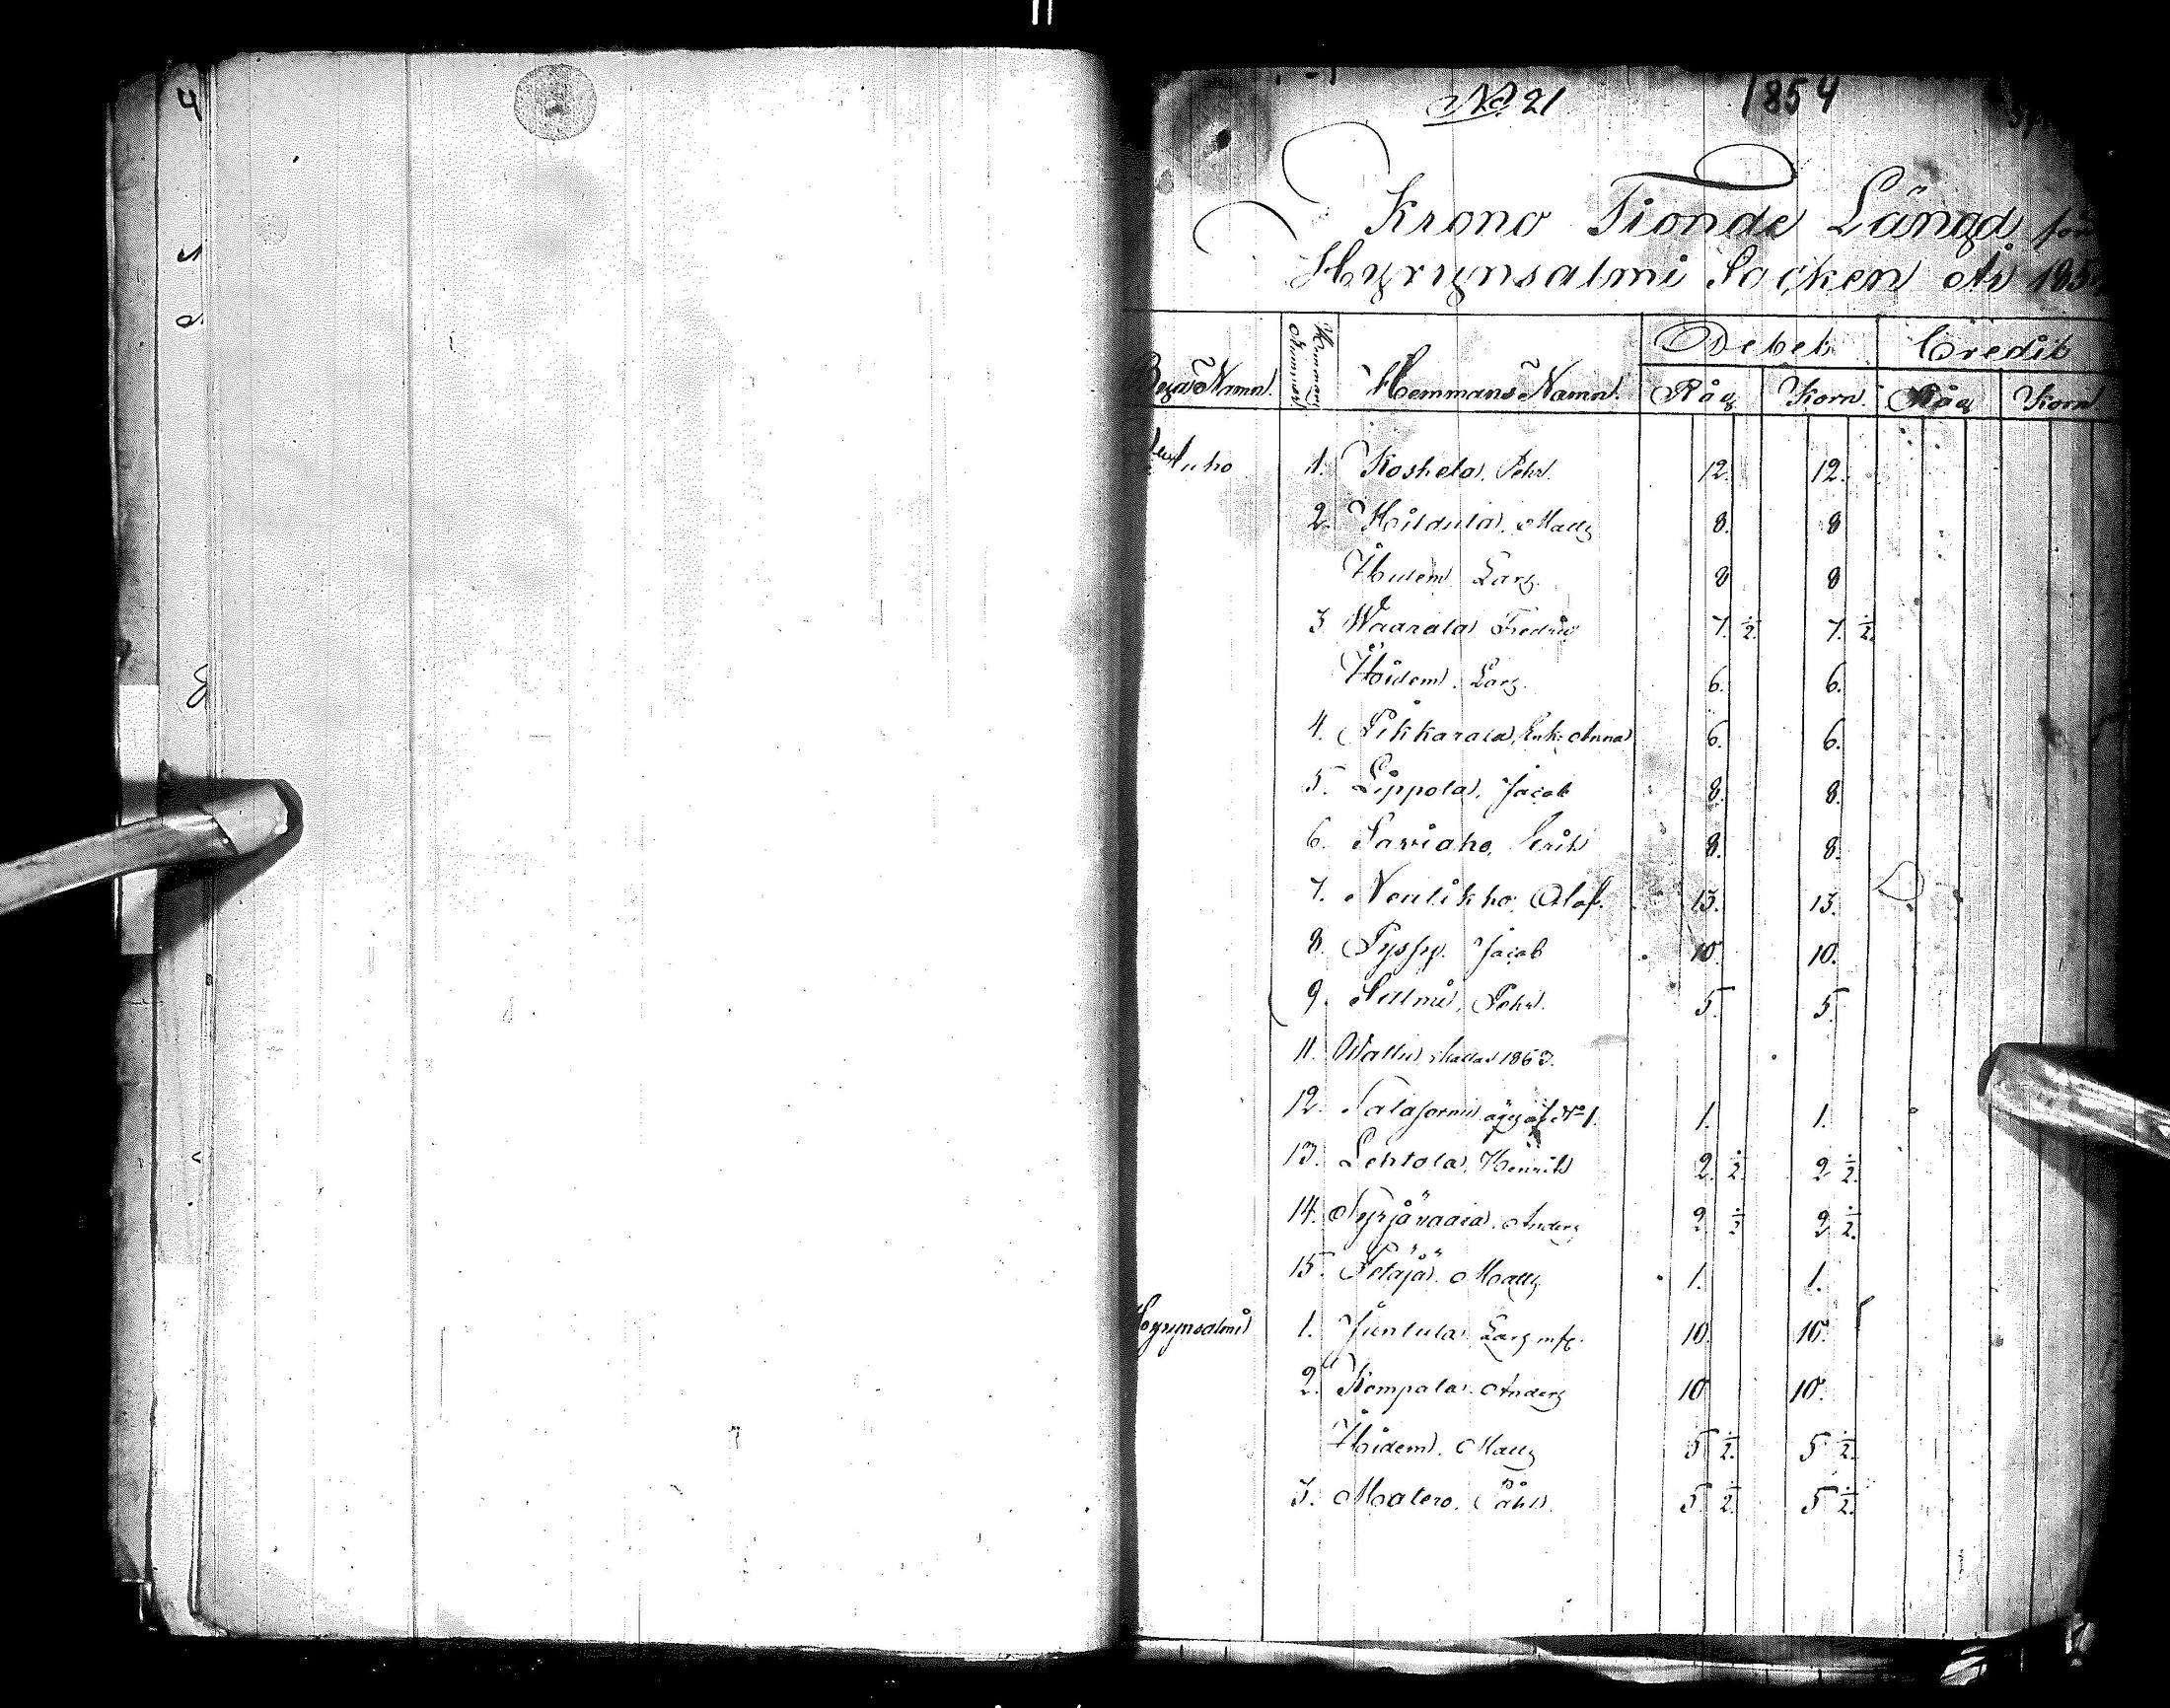 No. 21 1854
Krono Tionde Längd för
Hyrynsalmi Socken År 185
Byars Namn. Hemmans Nummer. Hemmans Namn. Debet Credit
Råg Korn. Råg Korn
1. Koskela, Pehr. 12. 12.
2. Matts 8. 8
Ibidem Lars. 8 8
3 Waarala Fredric 7. ½ 7. ½.
Ibidem. Lars. 6. 6.
4. Pikkarala, Enk: Anna 6. 6.
5. Lippola, Jacob 8. 8.
6. Saviaho, Erik 8. 8.
7. Neulikko, Olof. 13. 13.
8. Pyssy. Jacob 10. 10.
9. Salmi, Pehr. 5. 5.
11. 1863.
12. N:o 1. 1. 1.
13. Lehtola, Henrik 2. ½. 2 ½.
14. Anders 2 ½ 2 ½.
15. Petäjä. Matts 1. 1.
Hyrynsalmi 1. Juntula. Lars 10. 10.
2. Kempala. Anders 10 10.
Ibidem. Matts 5 ½. 5 ½.
3. Matero. Påhl. 5. ½. 5 ½.